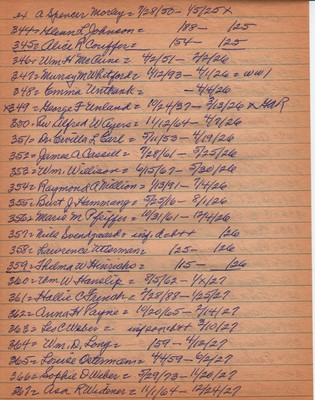 A Spencer Morley = 7/28/50 - 1/5/25 x
344 = Glenn L Johnson = 188 - 125
345 = Alice R Couffer = 154 - 125
346 = Wm H McCline = 4/2/51 - 2/2/26
347 = Murray M Whitford = 9/12/93 - 4/1/26 = WW1
348 = Emma Unthank = - 4/4/26
x349 = George F Unland = 10/24/37 - 3/13/26 x
350 = Rev Alfred W Ayers = 11/12/64 - 4/9/26
351 = Dr Orville L Earl = 5/11/53 - 4/19/26
352 = James A Cassell = 7/28/61 - 5/25/26
353 = Wm. Willison = 6/15/67 - 5/30/26
354 = Raymond A Million = 1/13/91 - 7/4/26
355 = Burt J Hemmang = 5/25/16 - 8/1/26
356 = Marie M Pfeiffer = 10/31/61 - 12/4/26
357 = Nils Svendgaard = 126
358 = Lawrence Utterman = 125 - 126
359 = Thelma W Hinrichs = 115 - 126
360 = Wm W Hanslip = 8/5/62 - 1/2/27
361 = Hallie C French = 2/28/88 - 1/25/27
362 = Anna H Payne = 10/20/65 - 2/14/27
363 = Les C Weber = 3/10/27
364 = Wm. D. Long = 159 - 4/12/27
365 = Louise Ostermann = 4/4/59 - 5/2/27
366 = Sophie D Weber = 5/29/73 - 11/20/27
367 = Asa R Widener = 11/1/64 - 12/24/27